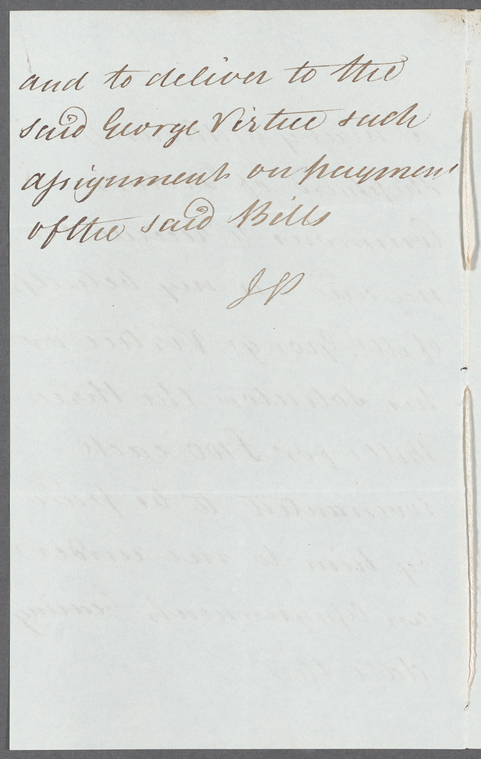 and to deliver to the
said George Virtue such
assignment on payment
of the said Bills
JP